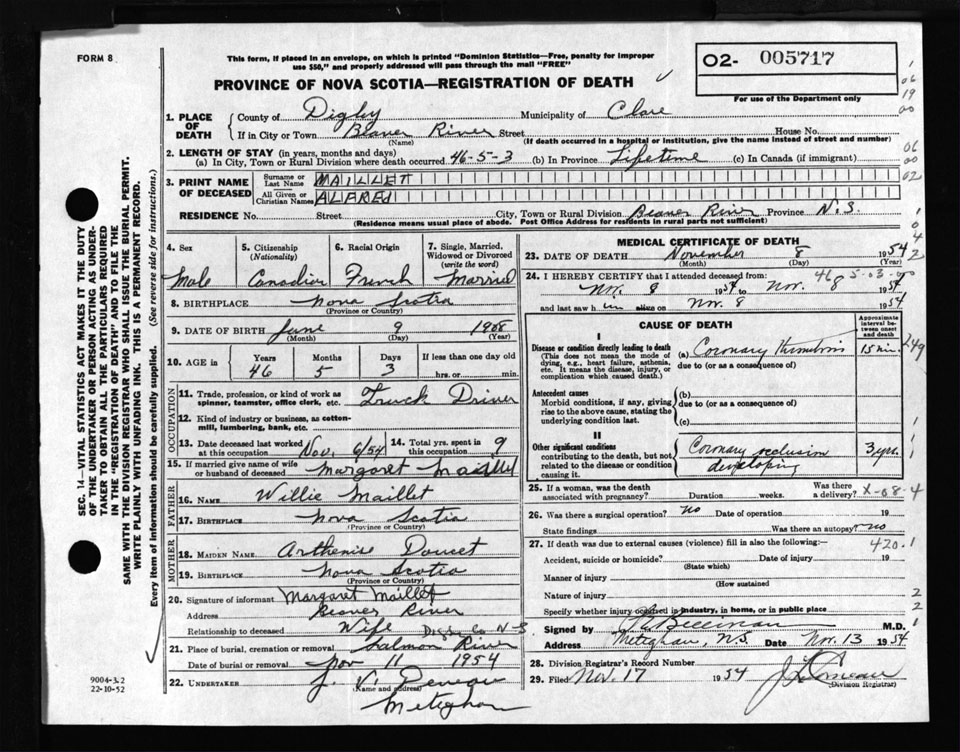 FORM 8
This form, if placed in an envelope, on which is printed "Dominion Statistics—Free, penalty for improper
use $50," and properly addressed will pass through the mail "FREE"
PROVINCE OF NOVA SCOTIA—REGISTRATION OF DEATH
O2- 005717
For use of the Department only
1. PLACE OF DEATH County of Digby Municipality of Clare
If in City or Town Beaver River Street House No.
(Name) (If death occurred in a hospital or institution, give the name instead of street and number)
2. LENGTH OF STAY (in years, months and days)
(a) In City, Town or Rural Division where death occurred 46-5-3 (b) In Province Lifetime (c) In Canada (if immigrant)
3. PRINT NAME OF DECEASED Surname or Last Name MAILLET
All Given or Christian Names ALFRED
RESIDENCE No. Street City, Town or Rural Division Beaver River Province N.S.
(Residence means usual place of abode. Post Office Address for residents in rural parts not sufficient)
4. Sex Male
5. Citizenship (Nationality) Canadian
6. Racial Origin French
7. Single, Married, Widowed or Divorced (write the word) Married
8. BIRTHPLACE Nova Scotia
(Province or Country)
9. DATE OF BIRTH June 9 1908
(Month) (Day) (Year)
10. AGE in Years Months Days If less than one day old
46 5 3 hrs. or min.
OCCUPATION
11. Trade, profession, or kind of work as spinner, teamster, office clerk, etc. Truck Driver
12. Kind of industry or business, as cotton-mill, lumbering, bank, etc.
13. Date deceased last worked at this occupation Nov. 6/54 14. Total yrs. spent in this occupation 9
15. If married give name of wife or husband of deceased Margaret Maillet
FATHER
16. NAME Willie Maillet
17. BIRTHPLACE Nova Scotia
(Province or Country)
MOTHER
18. MAIDEN NAME Arthenise Doucet
19. BIRTHPLACE Nova Scotia
(Province or Country)
20. Signature of informant Margaret Maillet
Address Beaver River
Digby Co N-S
Relationship to deceased Wife
21. Place of burial, cremation or removal Salmon River
Date of burial or removal Nov 11 1954
22. UNDERTAKER J. V. Deveau
(Name and address)
Meteghan
MEDICAL CERTIFICATE OF DEATH
23. DATE OF DEATH November 8 1954
(Month) (Day) (Year)
24. I HEREBY CERTIFY that I attended deceased from:
Nov. 8 1954 to Nov. 8 1954
and last saw h im alive on Nov. 8 1954
CAUSE OF DEATH
Approximate interval between onset and death
I
Disease or condition directly leading to death
(This does not mean the mode of dying, e.g., heart failure, asthenia, etc. It means the disease, injury, or complication which caused death.)
(a) Coronary thrombosis 15 min.
due to (or as a consequence of)
Antecedent causes
Morbid conditions, if any, giving rise to the above cause, stating the underlying condition last.
(b)
due to (or as a consequence of)
(c)
II
Other significant conditions
contributing to the death, but not related to the disease or condition causing it.
Coronary occlusion developing 3 yrs.
25. If a woman, was the death associated with pregnancy? Duration weeks. Was there a delivery? X-08-4
26. Was there a surgical operation? no Date of operation 19
State findings Was there an autopsy? no
27. If death was due to external causes (violence) fill in also the following:— 420.1
Accident, suicide or homicide? Date of injury 19
(State which)
Manner of injury
(How sustained
Nature of injury
Specify whether injury occurred in industry, in home, or in public place
Signed by M.D.
Address Meteghan, N.S. Date Nov. 13 1954
28. Division Registrar's Record Number
29. Filed Nov. 17 1954
(Division Registrar)
SEC. 14—VITAL STATISTICS ACT MAKES IT THE DUTY
OF THE UNDERTAKER OR PERSON ACTING AS UNDER-
TAKER TO OBTAIN ALL THE PARTICULARS REQUIRED
IN THE "REGISTRATION OF DEATH" AND TO FILE THE
SAME WITH THE DIVISION REGISTRAR WHO SHALL ISSUE THE BURIAL PERMIT.
WRITE PLAINLY WITH UNFADING INK. THIS IS A PERMANENT RECORD.
Every item of information should be carefully supplied. (See reverse side for instructions.)
9004-3.2
22-10-52